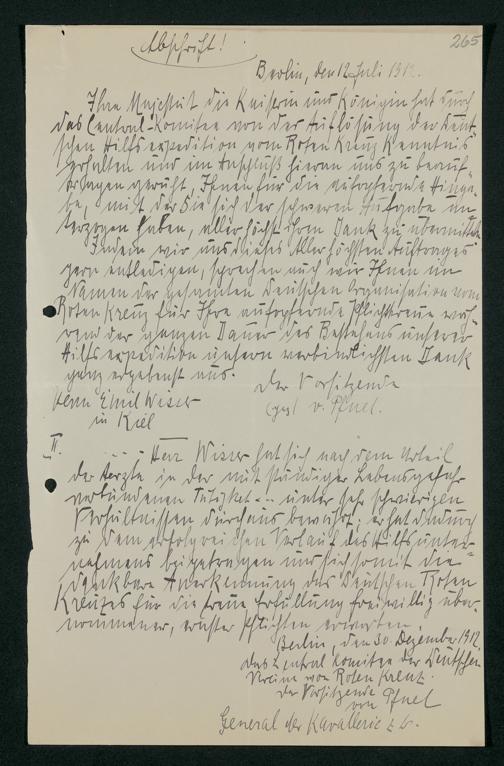 265
Abschrift!
Berlin, den 12 Juli 1912.
Ihre Majestät die Kaiserin und Königin hat durch
das Central-Komitee von der Auflösung der Deut-
schen Hilfsexpedition vom Roten Kreuz Kenntnis
erhalten und im Anschluß hieran uns zu beauf-
tragen geruht, Ihnen für die aufopfernde Hinga-
be, mit der Sie sich der schweren Aufgabe un-
terzogen haben, allerhöchst ihren Dank zu übermitteln
Indem wir uns dieses Allerhöchsten Auftrages
gern entledigen, sprechen auch wir Ihnen im
Namen der gesamten Deutschen Organisation vom
Roten Kreuz für Ihre aufopfernde Pflichttreue wäh-
rend der ganzen Dauer des Bestehens unserer
Hilfsexpedition unsern verbindlichsten Dank
ganz ergebenst aus.
Der Vorsitzende
(gez) v. Pfuel.
Herrn Emil Wiser
in Kiel
II.
Herr Wiser hat sich nach dem Urteil
der Aerzte in der mit ständiger Lebensgefahr
verbundenen Tätigket - .. unter sehr schwierigen
Verhältnissen durchaus bewährt; er hat dadurch
zu dem erfolgreichen Verlauf des Hilfsunter-
nehmens beigetragen und sich somit die
dankbare Anerkennung des Deutschen Roten
Kreuzes für die treue Erfüllung freiwillig über-
nommener, ernster Pflichten erworben.
Berlin, den 30. Dezember 1912.
Das Zentral Komitee der Deutschen
Vereine vom Roten Kreuz.
Der Vorsitzende
von Pfuel
General der Kavallerie z. D.